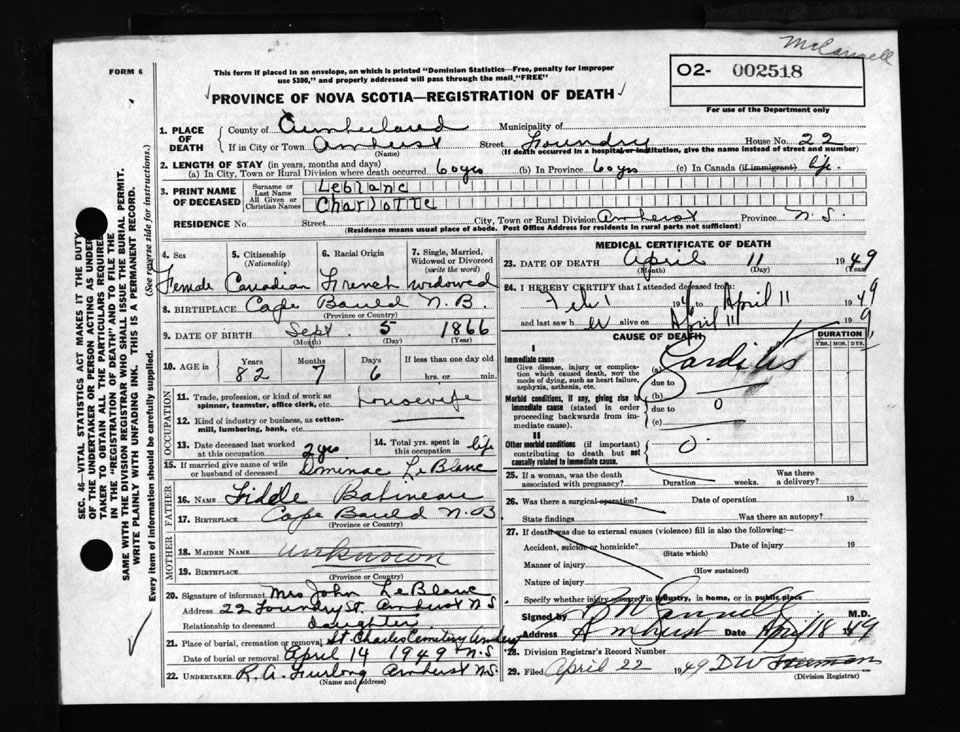 McCannell
FORM 6
This form if placed in an envelope, on which is printed "Dominion Statistics—Free, penalty for improper
use $300," and properly addressed will pass through the mail "FREE"
O2- 002518
For use of the Department only
PROVINCE OF NOVA SCOTIA—REGISTRATION OF DEATH
1. PLACE OF DEATH
County of Cumberland Municipality of
If in City or Town Amherst Street Foundry House No. 22
(Name) (If death occurred in a hospital or institution, give the name instead of street and number)
2. LENGTH OF STAY (in years, months and days)
(a) In City, Town or Rural Division where death occurred 60 yrs (b) In Province 60 yrs (c) In Canada (if immigrant) life
3. PRINT NAME OF DECEASED
Surname or Last Name Leblanc
All Given or Christian Names Charlotte
RESIDENCE No. Street City, Town or Rural Division Amherst Province N.S.
(Residence means usual place of abode. Post Office Address for residents in rural parts not sufficient)
4. Sex 5. Citizenship (Nationality) 6. Racial Origin 7. Single, Married, Widowed or Divorced (write the word)
Female Canadian French widowed
8. BIRTHPLACE Cape Bauld N.B.
(Province or Country)
9. DATE OF BIRTH Sept. 5 1866
(Month) (Day) (Year)
10. AGE Years Months Days If less than one day old
82 7 6 hrs. or min.
OCCUPATION
11. Trade, profession, or kind of work as spinner, teamster, office clerk, etc. Housewife
12. Kind of industry or business, as cotton-mill, lumbering, bank, etc.
13. Date deceased last worked at this occupation 2 yrs
14. Total yrs. spent in this occupation life
15. If married give name of wife or husband of deceased LeBlanc
FATHER
16. NAME
17. BIRTHPLACE Cape Bauld N.B
(Province or Country)
MOTHER
18. MAIDEN NAME unknown
19. BIRTHPLACE
(Province or Country)
20. Signature of informant Mrs John LeBlanc
Address 22 Foundry St. Amherst N S
Relationship to deceased daughter
21. Place of burial, cremation or removal St Charles Cemetery Amherst
Date of burial or removal April 14 1949 N.S
22. UNDERTAKER R. A. Furlong Amherst N.S.
(Name and address)
MEDICAL CERTIFICATE OF DEATH
23. DATE OF DEATH April 11 1949
(Month) (Day) (Year)
24. I HEREBY CERTIFY that I attended deceased from:
Feb 1 194 to April 11 1949
and last saw her alive on April 11 1949
CAUSE OF DEATH
DURATION
YRS. MOS. DYS.
I
Immediate cause
Give disease, injury or complication which caused death, NOT the mode of dying, such as heart failure, asphyxia, asthenia, etc.
(a) Carditis
due to
Morbid conditions, if any, giving rise to immediate cause (stated in order proceeding backwards from immediate cause).
(b)
due to 0
(c)
II
Other morbid conditions (if important) contributing to death but not causally related to immediate cause.
0
25. If a woman, was the death associated with pregnancy? Duration weeks. Was there a delivery?
26. Was there a surgical operation? Date of operation 19
State findings Was there an autopsy?
27. If death was due to external causes (violence) fill in also the following:
Accident, suicide or homicide? Date of injury 19
(State which)
Manner of injury
(How sustained)
Nature of injury
Specify whether injury occurred in industry, in home, or in public place
Signed by McCannell M.D.
Address Amherst Date April 18 49
28. Division Registrar's Record Number
29. Filed April 22 1949 D W
(Division Registrar)
SEC. 46—VITAL STATISTICS ACT MAKES IT THE DUTY
OF THE UNDERTAKER OR PERSON ACTING AS UNDER-
TAKER TO OBTAIN ALL THE PARTICULARS REQUIRED
IN THE "REGISTRATION OF DEATH" AND TO FILE THE
SAME WITH THE DIVISION REGISTRAR WHO SHALL ISSUE THE BURIAL PERMIT.
WRITE PLAINLY WITH UNFADING INK. THIS IS A PERMANENT RECORD.
Every item of information should be carefully supplied. (See reverse side for instructions.)